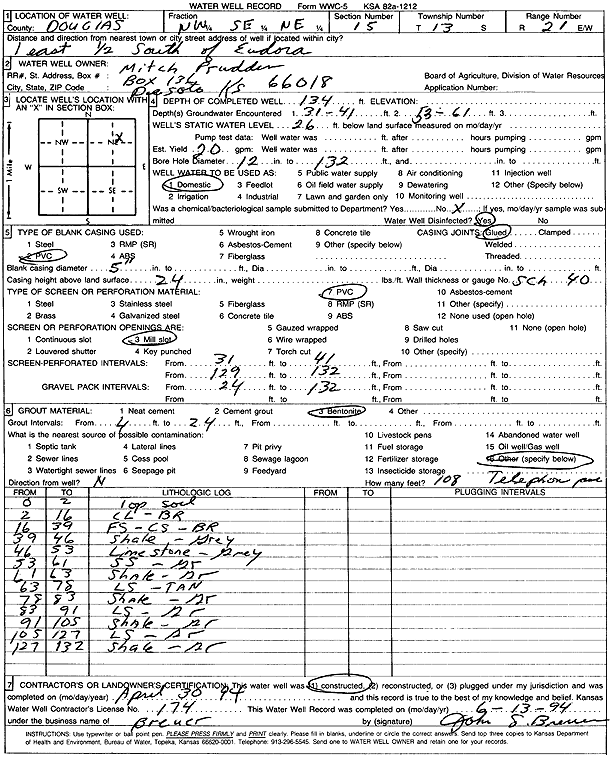 WATER WELL RECORD Form WWC-5 KSA 82a-1212
1 LOCATION OF WATER WELL: Fraction Section Number Township Number Range Number
County: DOUGLAS NW ¼ SE ¼ NE ¼ 15 T 13 S R 21 E/W
Distance and direction from nearest town or city street address of well if located within city?
1 east 1/2 South of Eudora
2 WATER WELL OWNER: Mitch Prudden
RR#, St. Address, Box #: Box 136 Board of Agriculture, Division of Water Resources
City, State, ZIP Code: Desoto Ks 66018 Application Number:
3 LOCATE WELL'S LOCATION WITH AN "X" IN SECTION BOX:
N
NW NE X
W E
SW SE
S
1 Mile
4 DEPTH OF COMPLETED WELL 134 ft. ELEVATION:
Depth(s) Groundwater Encountered 1. 31-41 ft. 2. 53-61 ft. 3. ft.
WELL'S STATIC WATER LEVEL 26 ft. below land surface measured on mo/day/yr
Pump test data: Well water was ft. after hours pumping gpm
Est. Yield 20 gpm: Well water was ft. after hours pumping gpm
Bore Hole Diameter 12 in. to 132 ft., and in. to ft.
WELL WATER TO BE USED AS: 5 Public water supply 8 Air conditioning 11 Injection well
1 Domestic 3 Feedlot 6 Oil field water supply 9 Dewatering 12 Other (Specify below)
2 Irrigation 4 Industrial 7 Lawn and garden only 10 Monitoring well
Was a chemical/bacteriological sample submitted to Department? Yes No X ; If yes, mo/day/yr sample was submitted Water Well Disinfected? Yes No
5 TYPE OF BLANK CASING USED: 5 Wrought iron 8 Concrete tile CASING JOINTS: Glued Clamped
1 Steel 3 RMP (SR) 6 Asbestos-Cement 9 Other (specify below) Welded
2 PVC 4 ABS 7 Fiberglass Threaded
Blank casing diameter 5" in. to ft., Dia in. to ft., Dia in. to ft.
Casing height above land surface 24 in., weight lbs./ft. Wall thickness or gauge No. Sch 40
TYPE OF SCREEN OR PERFORATION MATERIAL: 7 PVC 10 Asbestos-cement
1 Steel 3 Stainless steel 5 Fiberglass 8 RMP (SR) 11 Other (specify)
2 Brass 4 Galvanized steel 6 Concrete tile 9 ABS 12 None used (open hole)
SCREEN OR PERFORATION OPENINGS ARE: 5 Gauzed wrapped 8 Saw cut 11 None (open hole)
1 Continuous slot 3 Mill slot 6 Wire wrapped 9 Drilled holes
2 Louvered shutter 4 Key punched 7 Torch cut 10 Other (specify)
SCREEN-PERFORATED INTERVALS: From 31 ft. to 41 ft., From ft. to ft.
From 129 ft. to 132 ft., From ft. to ft.
GRAVEL PACK INTERVALS: From 24 ft. to 132 ft., From ft. to ft.
From ft. to ft., From ft. to ft.
6 GROUT MATERIAL: 1 Neat cement 2 Cement grout 3 Bentonite 4 Other
Grout Intervals: From 4 ft. to 24 ft., From ft. to ft., From ft. to ft.
What is the nearest source of possible contamination: 10 Livestock pens 14 Abandoned water well
1 Septic tank 4 Lateral lines 7 Pit privy 11 Fuel storage 15 Oil well/Gas well
2 Sewer lines 5 Cess pool 8 Sewage lagoon 12 Fertilizer storage 16 Other (specify below)
3 Watertight sewer lines 6 Seepage pit 9 Feedyard 13 Insecticide storage
Direction from well? N How many feet? 108 Telephon
FROM TO LITHOLOGIC LOG FROM TO PLUGGING INTERVALS
0 2 Top soil
2 16 CL-BR
16 39 FS-CS-BR
39 46 Shale-Grey
46 53 Limestone-Grey
53 61 SS-Gr
61 63 Shale-Gr
63 78 LS-TAN
78 83 Shale-Gr
83 91 LS-Gr
91 105 Shale-Gr
105 127 LS-Gr
127 132 Shale-Gr
7 CONTRACTOR'S OR LANDOWNER'S CERTIFICATION: This water well was (1) constructed, (2) reconstructed, or (3) plugged under my jurisdiction and was
completed on (mo/day/year) April 30 94 and this record is true to the best of my knowledge and belief. Kansas
Water Well Contractor's License No. 174 This Water Well Record was completed on (mo/day/yr) 6-13-94
under the business name of Breuer by (signature) John S. Breuer
INSTRUCTIONS: Use typewriter or ball point pen. PLEASE PRESS FIRMLY and PRINT clearly. Please fill in blanks, underline or circle the correct answers. Send top three copies to Kansas Department
of Health and Environment, Bureau of Water, Topeka, Kansas 66620-0001. Telephone: 913-296-5545. Send one to WATER WELL OWNER and retain one for your records.